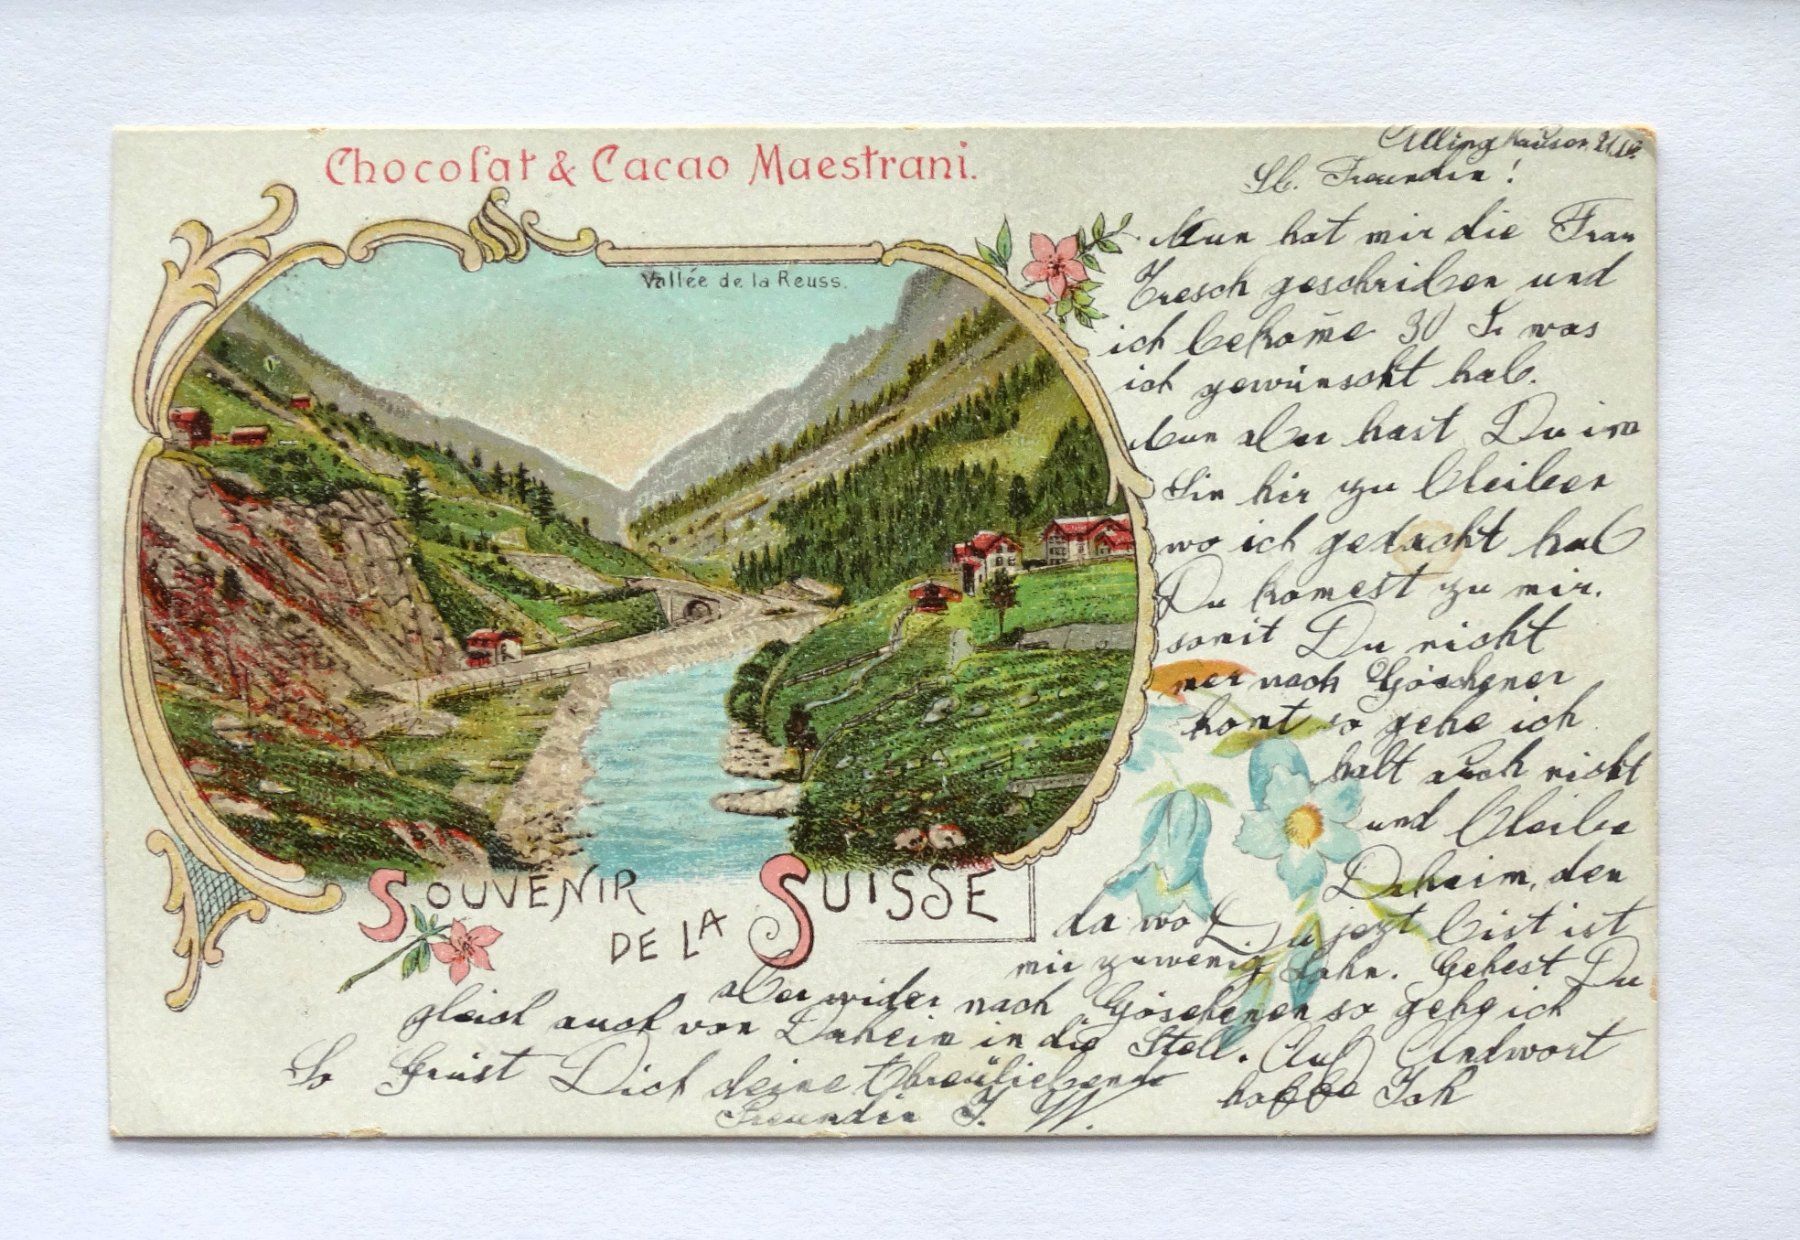 Chocolat & Cacao Maestrani.
Vallée de la Reuss.
SOUVENIR
DE LA SUISSE
Attinghausen
Lb. Freundin!
Nun hat mir die Frau
Tresch geschriben und
ich bekom̄e 30 Fr was
ich gewünscht hab.
Nun aber hast Du im
Sin hir zu bleiben
wo ich gedacht hab
Du komest zu mir.
somit Du nicht
mer nach Göschenen
komt so gehe ich
halt auch nicht
und bleibe
Daheim, den
da wo Du jezt bist ist
mir zuwenig Lohn. Gehest Du
aber wider nach Göschenen so gehe ich
gleich auch von Daheim in die Stell. Auf Andwort
So Grüst Dich deine threüliebende hoffe Ich
Freundin J. W.